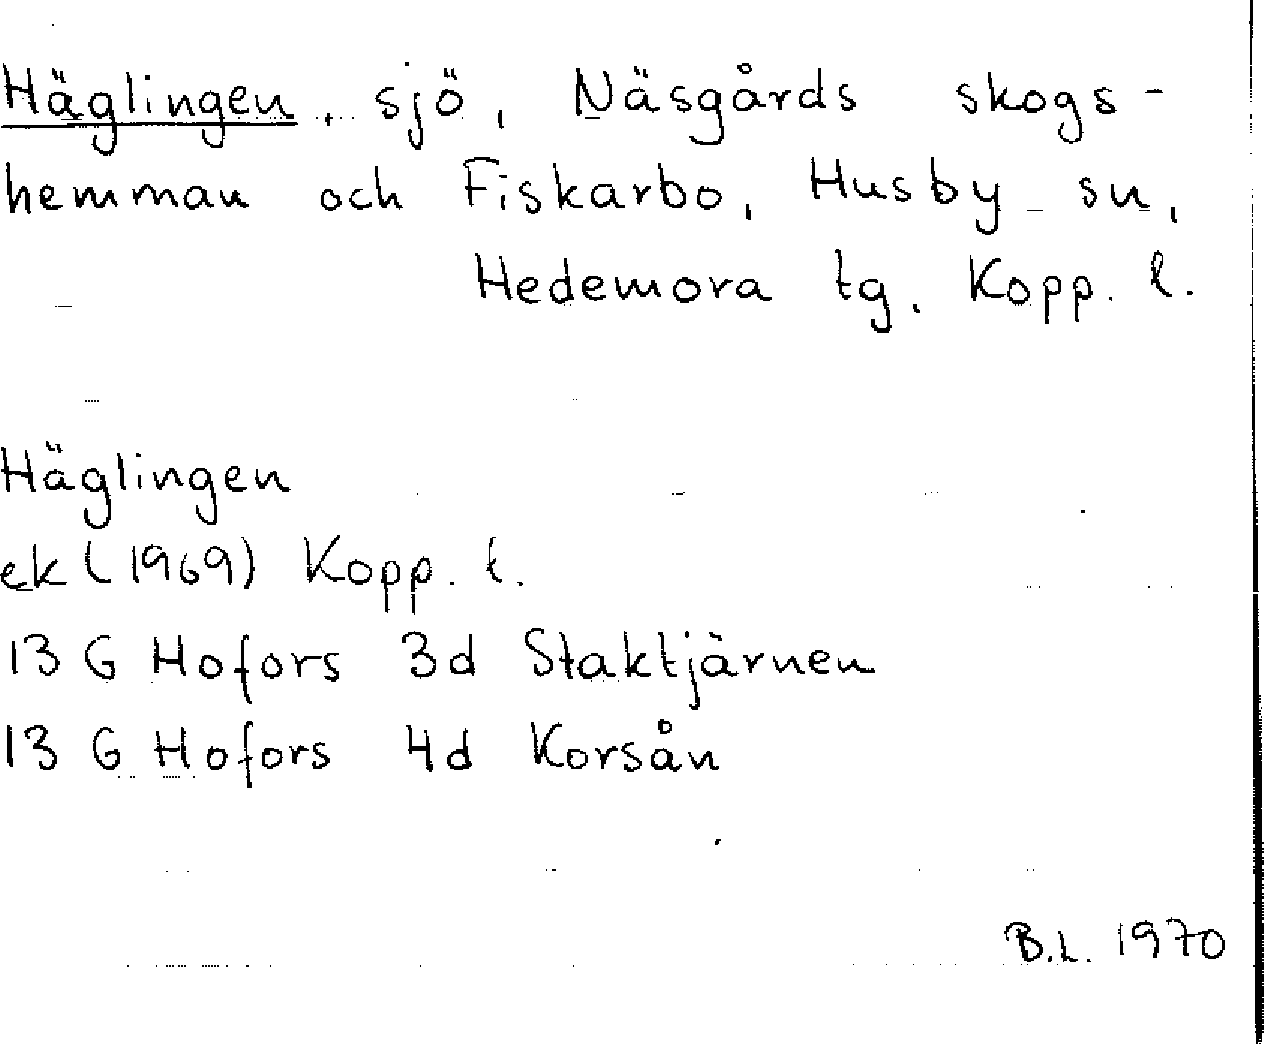 Häglingen, sjö, Näsgårds skogs-
hemman och Fiskarbo, Husby sn,
Hedemora tg, Kopp. l.
Häglingen
ek (1969) Kopp. l.
13 G Hofors 3d Staktjärnen
13 G Hofors 4d Korsån
B.L. 1970